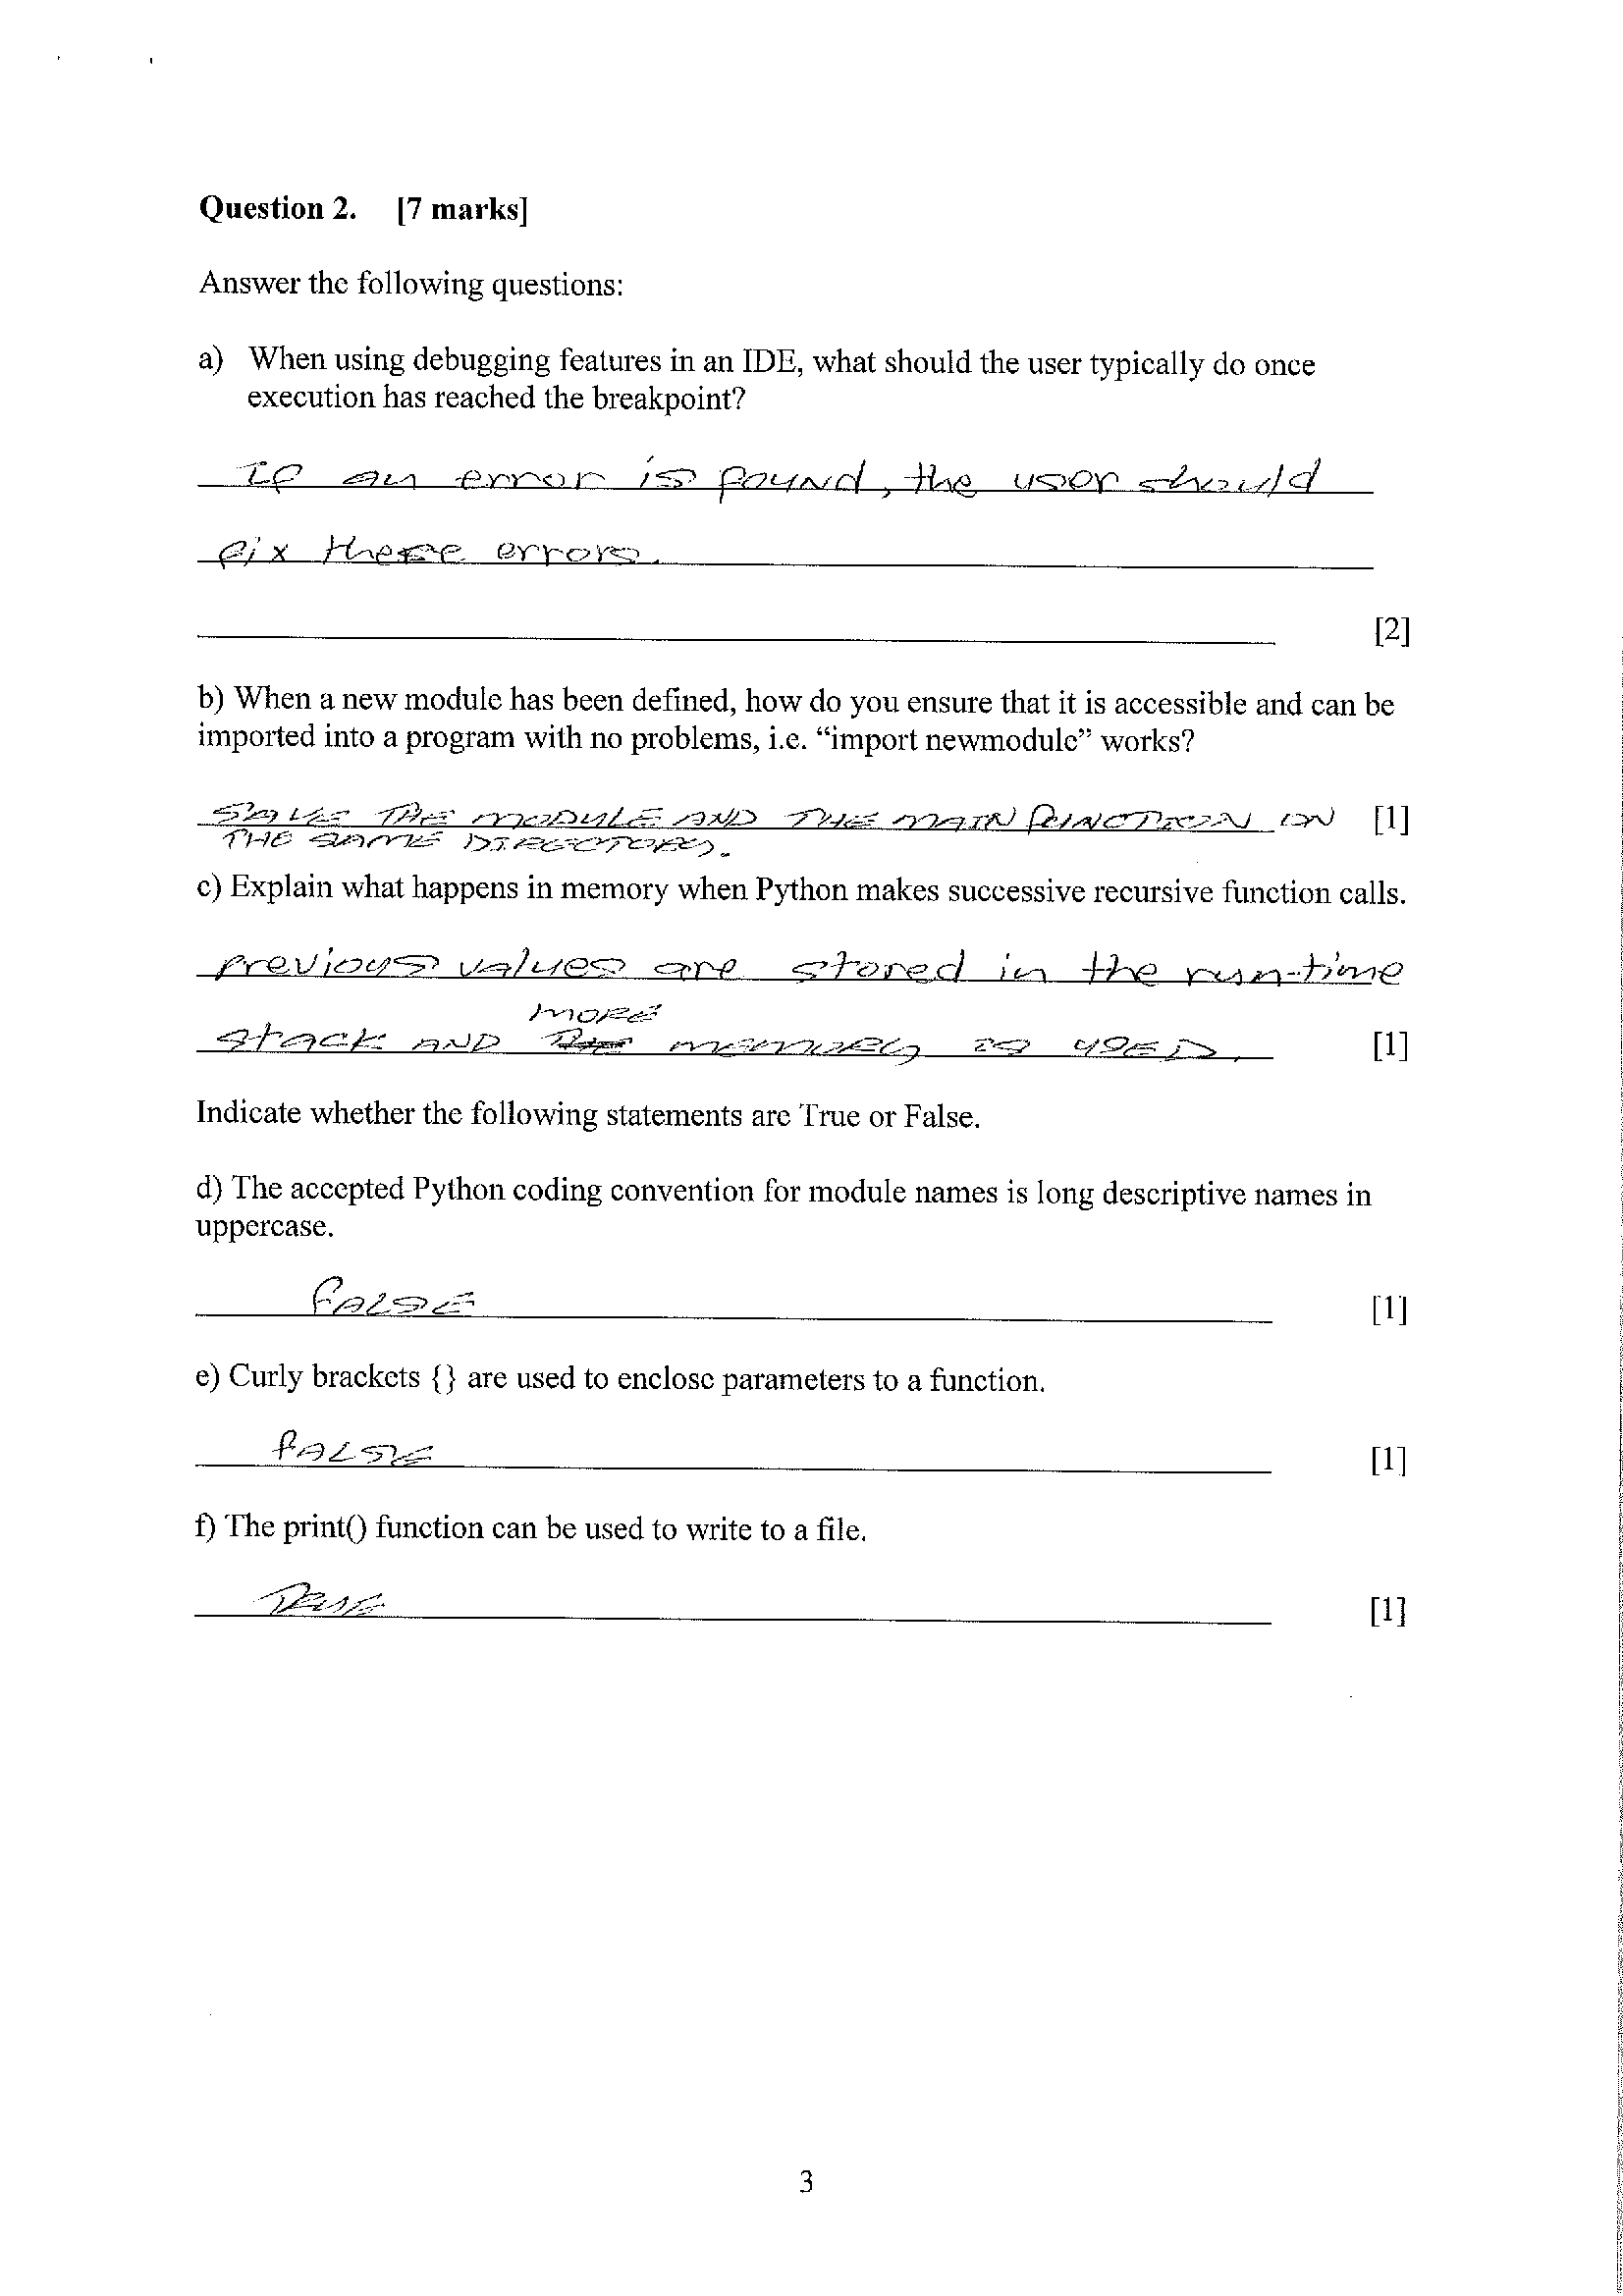 Question 2. [7 marks]
Answer the following questions:
a) When using debugging features in an IDE, what should the user typically do once
execution has reached the breakpoint?
If an error is found, the user should
fix these errors.
[2]
b) When a new module has been defined, how do you ensure that it is accessible and can be
imported into a program with no problems, i.e. “import newmodule” works?
SAVE THE MODULE AND THE MAIN FUNCTION ON [1]
THE SAME DIRECTORY.
c) Explain what happens in memory when Python makes successive recursive function calls.
previous values are stored in the run-time
MORE
stack AND MEMORY IS USED. [1]
Indicate whether the following statements are True or False.
d) The accepted Python coding convention for module names is long descriptive names in
uppercase.
FALSE [1]
e) Curly brackets {} are used to enclose parameters to a function.
FALSE [1]
f) The print() function can be used to write to a file.
TRUE [1]
3